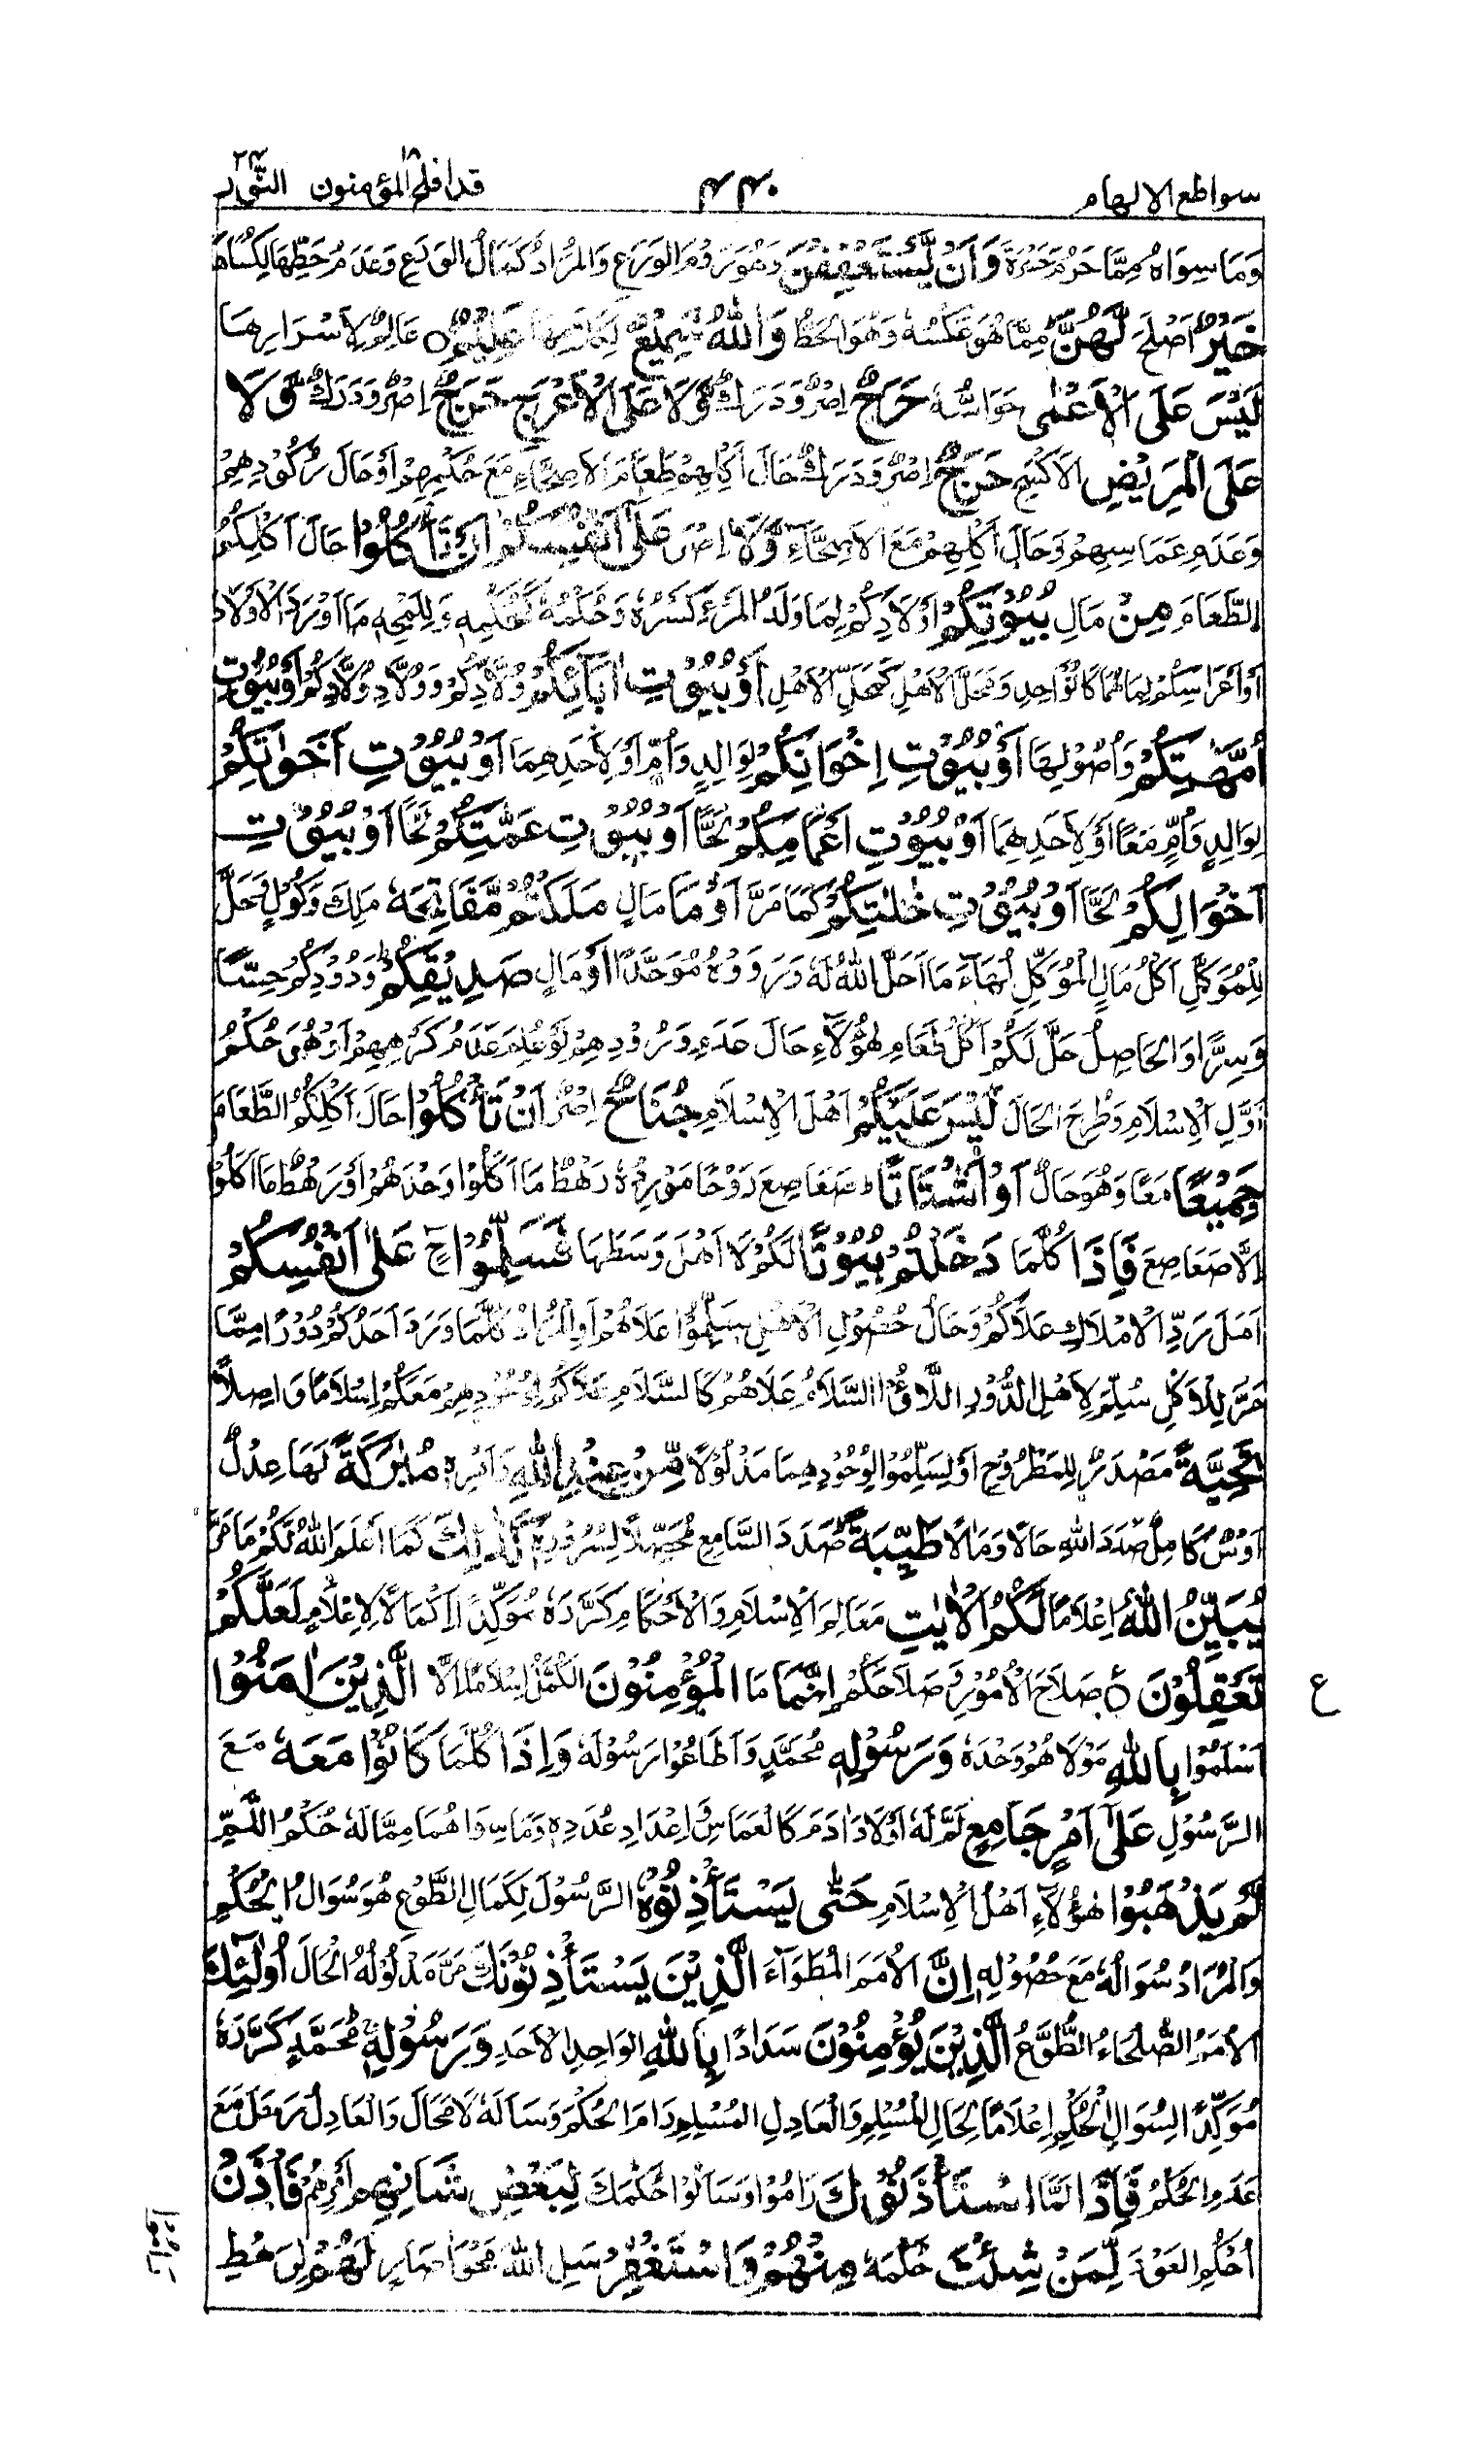 سواطع الالهام ۴۴۰ قد افلح المؤمنون ۱۸ النور ۲۴
وَمَا سِوَاهُ مِمَّا حَرُمَ وَأَنْ يَّسْتَعْفِفْنَ وَهُوَ رَوْمُ الْوَرَعِ وَالْمُرَادُ كَمَالُ الْوَرَعِ وَعَدَمُ حَطِّهَا لِكُسَاهَا
خَيْرٌ اَصْلَحُ لَّهُنَّ مِمَّا هُوَ عَكْسُهُ وَهُوَ الْحَطُّ وَاللهُ سَمِيْعٌ عَلِيْمٌ عَالِمٌ لِاَسْرَارِهَا
لَيْسَ عَلَى الْاَعْمٰى حَوَاسُّهُ حَرَجٌ اِصْرٌ وَدَرَكٌ وَّلَا عَلَى الْاَعْرَجِ حَرَجٌ اِصْرٌ وَدَرَكٌ وَّلَا
عَلَى الْمَرِيْضِ الْاَكْسَحِ حَرَجٌ اِصْرٌ وَدَرَكٌ حَالَ اَكْلِهِمْ طَعَامَ الْاَصِحَّاءِ مَعَ حُكْمِهِمْ اَوْ حَالَ رُكُوْدِهِمْ
وَعَدَمِ عَمَاسِهِمْ وَحَالَ اَكْلِهِمْ مَعَ الْاَصِحَّاءِ وَّلَا اِصْرَ عَلٰى اَنْفُسِكُمْ اَنْ تَأْكُلُوْا حَالَ اَكْلِكُمُ
الطَّعَامَ مِنْ مَالِ بُيُوْتِكُمْ اَوْلَادِكُمْ لِمَا وَلَدُ الْمَرْءِ كَسْرُهُ وَحُكْمُهُ كَحُكْمِهِ وَلِلَمْحِهِ مَا اَوْرَدَ الْاَوْلَادَ
اَوْ اَعْرَاسِكُمْ لِمَا هُمَا كَالْوَاحِدِ وَمَحَلُّ الْاَهْلِ كَمَحَلِّ الْاَهْلِ اَوْ بُيُوْتِ اٰبَآئِكُمْ وُلَّادِكُمْ وَوُلَّادِ وُلَّادِكُمْ اَوْ بُيُوْتِ
اُمَّهٰتِكُمْ وَاُصُوْلِهَا اَوْ بُيُوْتِ اِخْوَانِكُمْ لِوَالِدٍ وَاُمٍّ اَوْ لِاَحَدِهِمَا اَوْ بُيُوْتِ اَخَوٰتِكُمْ
لِوَالِدٍ وَاُمٍّ مَعًا اَوْ لِاَحَدِهِمَا اَوْ بُيُوْتِ اَعْمَامِكُمْ لَحًّا اَوْ بُيُوْتِ عَمّٰتِكُمْ لَحًّا اَوْ بُيُوْتِ
اَخْوَالِكُمْ لَحًّا اَوْ بُيُوْتِ خٰلٰتِكُمْ كَمَا مَرَّ اَوْ مَا مَالٍ مَلَكْتُمْ مَّفَاتِحَهٗ مِلْكَ وَكُوْلٍ وَحَلَّ
لِلْمُوَكَّلِ اَكْلُ مَالِ الْمُوَكِّلِ لِمَا مَا اَحَلَّ اللهُ لَهُ وَرَوَوْهُ مُوَحَّدًا اَوْ مَالِ صَدِيْقِكُمْ وَدُوْدِكُمْ حِسًّا
وَسِرًّا وَالْحَاصِلُ حَلَّ لَكُمْ اَكْلُ طَعَامِ هٰؤُلَاءِ حَالَ عَدَمِ وُرُوْدِهِمْ لَوْ عُلِمَ عَدَمُ كَرْهِهِمْ اَوْ هُوَ حُكْمُ
اَوَّلِ الْاِسْلَامِ وَطُرِحَ الْحَالَ لَيْسَ عَلَيْكُمْ اَهْلَ الْاِسْلَامِ جُنَاحٌ اِصْرٌ اَنْ تَأْكُلُوْا حَالَ اَكْلِكُمُ الطَّعَامَ
جَمِيْعًا مَعًا وَهُوَ حَالٌ اَوْ اَشْتَاتًا صَعَاصِعَ رَوْحًا مَوْرِدُهُ رَهْطٌ مَا اَكَلُوْا وَحْدَهُمْ اَوْ رَهْطٌ مَا اَكَلُوْا
اِلَّا صَعَاصِعَ فَاِذَا كُلَّمَا دَخَلْتُمْ بُيُوْتًا لَكُمْ لَا اَهْلَ وَسَطَهَا فَسَلِّمُوْا عَلٰى اَنْفُسِكُمْ
اَمَلَ رَدِّ الْاَمْلَاكِ عَلَاكُمْ وَحَالَ حُصُوْلِ الْاَهْلِ سَلِّمُوْا عَلَاهُمْ اَوِ الْمُرَادُ كُلَّمَا وَرَدَ اَحَدُكُمْ دُوْرًا مِمَّا
مَرَّ لِلْاَكْلِ سَلِّمْ لِاَهْلِ الدُّوْرِ السَّلَامُ عَلَاهُمْ كَالسَّلَامِ عَلَاكُمْ مَعَكُمْ اِسْلَامًا وَاصِلًا
تَحِيَّةً مَصْدَرٌ لِلْمَطْرُوْحِ اَوْ لِسَلِّمُوْا لِوُجُوْدِهِمَا مَدْلُوْلًا مِّنْ عِنْدِ اللهِ وَاَمْرِهِ مُبٰرَكَةً لَهَا عِدْلٌ
اَوْسٌ كَامِلٌ صَدَدَ اللهِ حَالًا وَمَالًا طَيِّبَةً صَدَدَ السَّامِعِ مُحَصِّلًا لِسُرُوْرِهِ كَذٰلِكَ كَمَا اَعْلَمَ اللهُ لَكُمْ مَا مَرَّ
يُبَيِّنُ اللهُ اِعْلَامًا لَكُمُ الْاٰيٰتِ مَعَالِمَ الْاِسْلَامِ وَالْاَحْكَامِ كَرَّرَهُ مُؤَكِّدًا اِكْمَالًا لِاِعْلَامٍ لَعَلَّكُمْ
تَعْقِلُوْنَ صَلَاحَ الْاُمُوْرِ وَصَلَاحَكُمْ اِنَّمَا مَا الْمُؤْمِنُوْنَ الْكُمَّلُ اِسْلَامًا اِلَّا الَّذِيْنَ اٰمَنُوْا
ع
اَسْلَمُوْا بِاللهِ مَوْلَاهُمْ وَحْدَهُ وَرَسُوْلِهٖ مُحَمَّدٍ وَاَطَاعُوْا رَسُوْلَهُ وَاِذَا كُلَّمَا كَانُوْا مَعَهٗ مَعَ
الرَّسُوْلِ عَلٰى اَمْرٍ جَامِعٍ لَمَّ لَهُ اَوْلَادُ اٰدَمَ كَالْعَمَاسِ وَاِعْدَادِ عُدَدِهِ وَمَا سِوَاهُمَا مِمَّا لَهُ حُكْمُ اللَّمِّ
لَّمْ يَذْهَبُوْا هٰؤُلَاءِ اَهْلُ الْاِسْلَامِ حَتّٰى يَسْتَأْذِنُوْهُ الرَّسُوْلَ لِكَمَالِ الطَّوْعِ هُوَ سُوَالُ الْحُكْمِ
وَالْمُرَادُ سُوَالُهُ مَعَ حُصُوْلِهِ اِنَّ الْاُمَمَ الطُّوَّاءَ الَّذِيْنَ يَسْتَأْذِنُوْنَكَ مَرَّ مَدْلُوْلُهُ الْحَالَ اُولٰٓئِكَ
الْاُمَمُ الصُّلَحَاءُ الطُّوَّعُ الَّذِيْنَ يُؤْمِنُوْنَ سَدَادًا بِاللهِ الْوَاحِدِ الْاَحَدِ وَرَسُوْلِهٖ مُحَمَّدٍ كَرَّرَهُ
مُؤَكِّدًا لِسُوَالِ الْحُكْمِ اِعْلَامًا لِحَالِ الْمُسْلِمِ وَالْعَادِلِ الْمُسْلِمُ رَامَ الْحُكْمَ وَسَاَلَهُ لَا مَحَالَ وَالْعَادِلُ رَمَلَ مَعَ
عَدَمِ الْحُكْمِ فَاِذَا لَمَّا اسْتَأْذَنُوْكَ رَامُوْا وَسَاَلُوْا حُكْمَكَ لِبَعْضِ شَأْنِهِمْ اَمْرِهِمْ فَأْذَنْ
اُحْكُمِ الْعَوْدَ لِّمَنْ شِئْتَ حُكْمَهُ مِنْهُمْ وَاسْتَغْفِرْ سَلِ اللهَ مَحْوَ اٰصَارٍ لَهُمْ